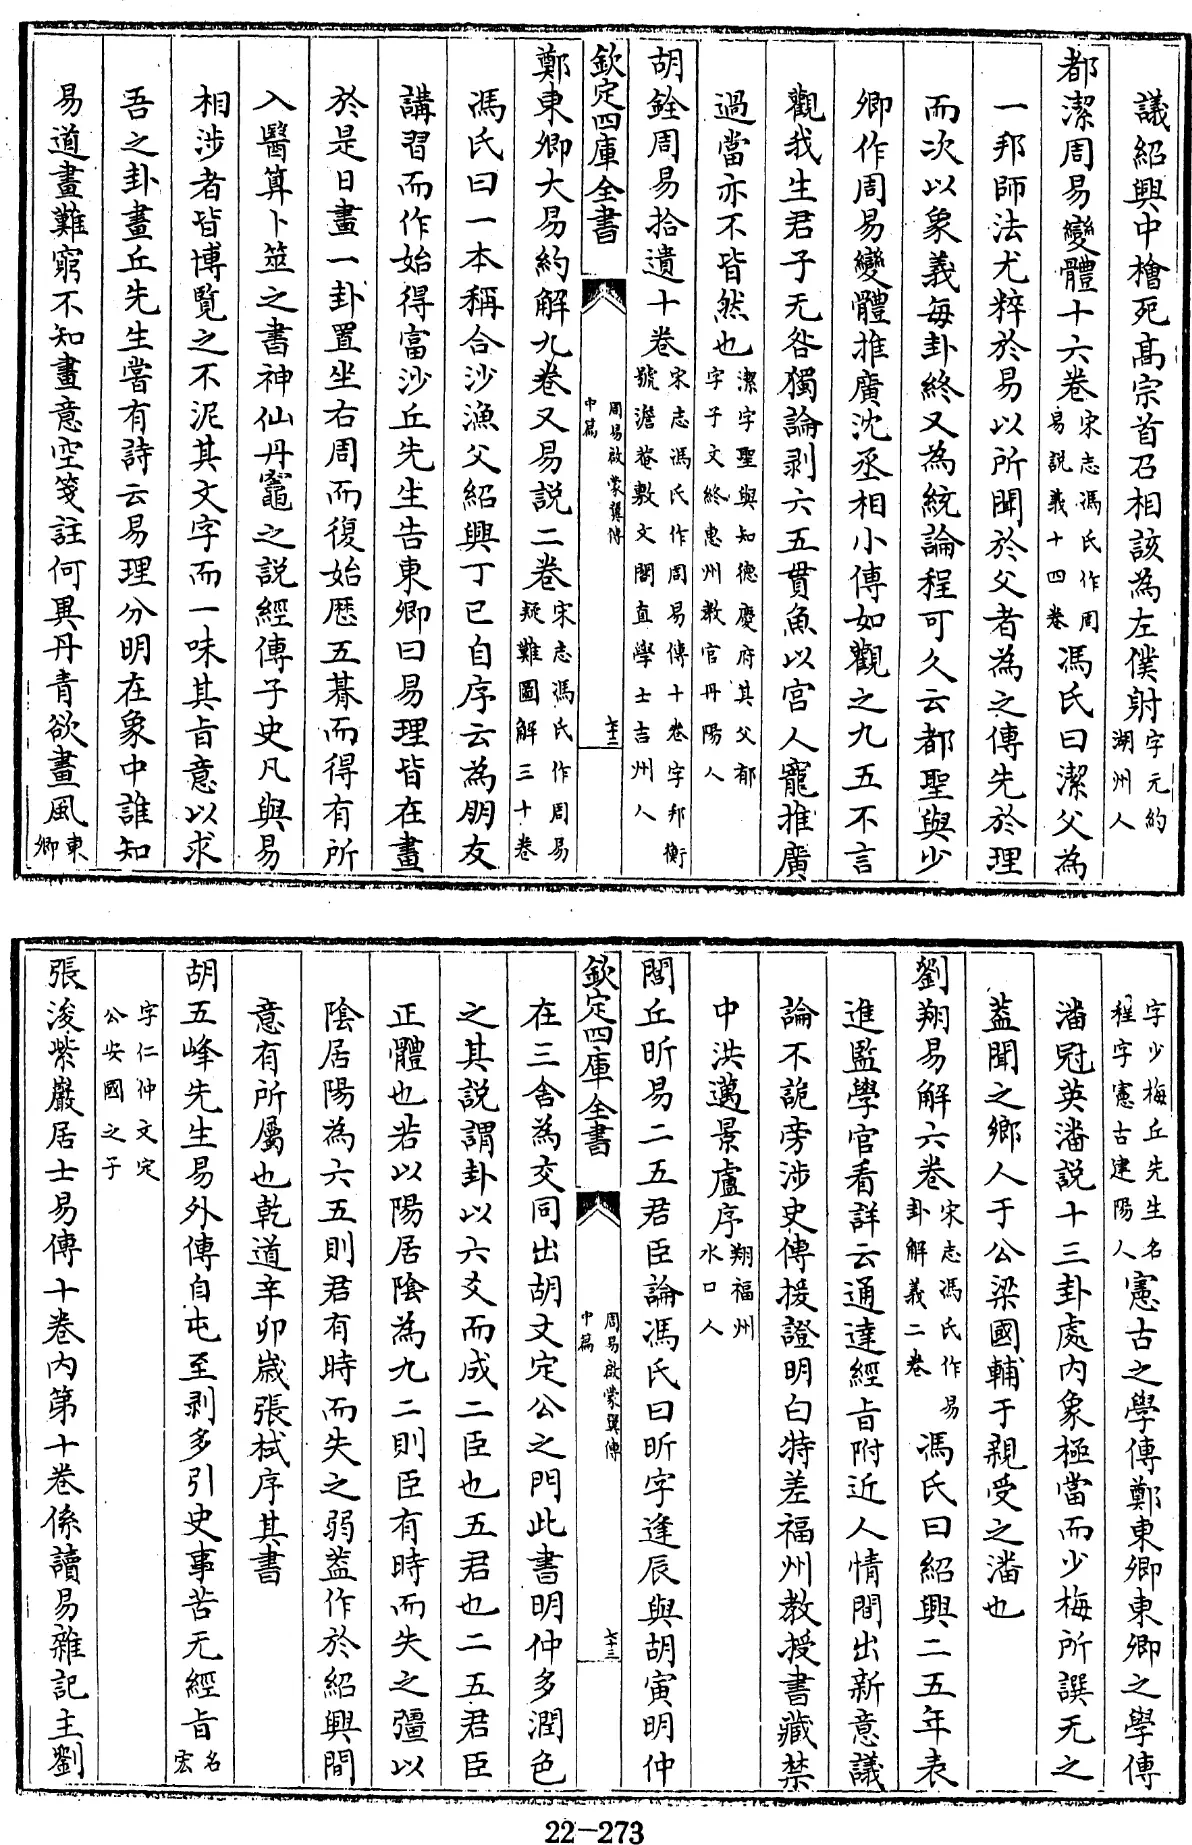 議紹興中檜死高宗首召相該為左僕射字元約湖州人
都潔周易變體十六卷宋志馮氏作周易說義十四卷馮氏曰潔父為
一邦師法尤粹於易以所聞於父者為之傳先於理
而次以象義每卦終又為統論程可久云都聖與少
卿作周易變體推廣沈丞相小傳如觀之九五不言
觀我生君子无咎獨論剥六五貫魚以宫人寵推廣
過當亦不皆然也潔字聖與知德慶府其父郁字子文終惠州教官丹陽人
胡銓周易拾遺十卷宋志馮氏作周易傳十卷字邦衡號澹菴敷文閣直學士吉州人
欽定四庫全書 周易啟蒙翼傳中篇 七十二
鄭東卿大易約解九卷又易說二卷宋志馮氏作周易疑難圖解三十卷
馮氏曰一本稱合沙漁父紹興丁巳自序云為朋友
講習而作始得富沙丘先生告東卿曰易理皆在畫
於是日畫一卦置坐右周而復始歷五朞而得有所
入醫算卜筮之書神仙丹竈之說經傳子史凡與易
相涉者皆博覽之不泥其文字而一味其旨意以求
吾之卦畫丘先生嘗有詩云易理分明在象中誰知
易道畫難窮不知畫意空箋註何異丹青欲畫風東卿
字少梅丘先生名程字憲古建陽人憲古之學傳鄭東卿東卿之學傳
潘冠英潘說十三卦處内象極當而少梅所譔无之
葢聞之鄉人于公梁國輔于親受之潘也
劉翔易解六卷宋志馮氏作易卦解義二卷馮氏曰紹興二五年表
進監學官看詳云通達經旨附近人情間出新意議
論不詭旁涉史傳援證明白特差福州教授書藏禁
中洪邁景盧序翔福州水口人
閭丘昕易二五君臣論馮氏曰昕字逢辰與胡寅明仲
欽定四庫全書 周易啟蒙翼傳中篇 七十三
在三舍為交同出胡文定公之門此書明仲多潤色
之其說謂卦以六爻而成二臣也五君也二五君臣
正體也若以陽居陰為九二則臣有時而失之彊以
陰居陽為六五則君有時而失之弱葢作於紹興間
意有所屬也乾道辛卯歲張栻序其書
胡五峰先生易外傳自屯至剥多引史事苦无經旨名宏
字仁仲文定公安國之子
張浚紫巖居士易傳十卷内第十卷係讀易雜記主劉
22-273